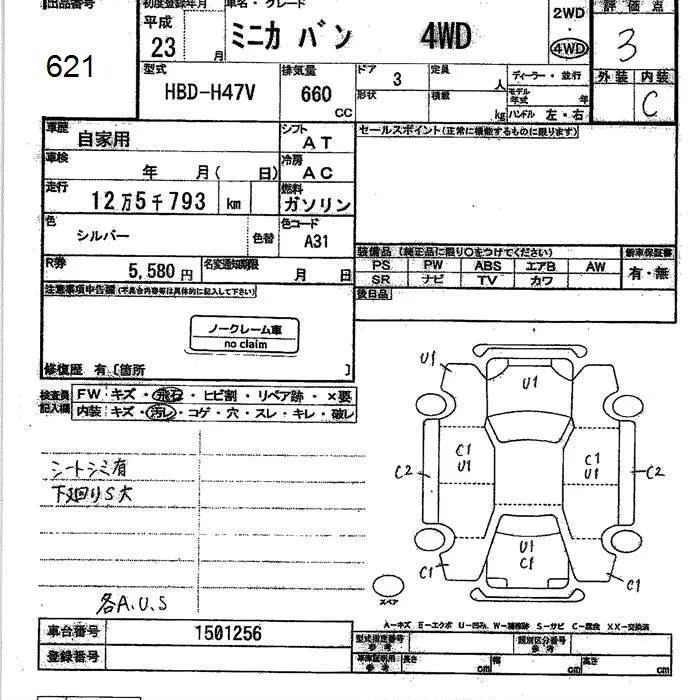 出品番号
621
初度登録年月
平成 23 月
車名・グレード
ミニカ バン 4WD
2WD ・ 4WD
評価点
3
外装 内装
C
型式
HBD-H47V
排気量
660 CC
ドア 3
形状
定員 人
積載 kg
ディーラー・並行
モデル年式 年
ハンドル 左・右
車歴
自家用
シフト
AT
車検
年 月( 日)
冷房
AC
走行
12万5千793 km
燃料
ガソリン
色
シルバー
色替
色コード
A31
R券
5,580円
名変通知期限
月 日
セールスポイント(正常に機能するものに限ります)
装備品(純正品に限り○をつけてください)
新車保証書
PS PW ABS エアB AW
SR ナビ TV カワ
有・無
後日品
注意事項申告欄(不具合内容等は具体的に記入して下さい)
ノークレーム車
no claim
修復歴 有〔箇所 〕
検査員記入欄
FW キズ・飛石・ヒビ割・リペア跡・×要
内装 キズ・汚レ・コゲ・穴・スレ・キレ・破レ
シートシミ有
下廻りS大
各A.U.S
U1
U1
C1
U1
C1
U1
C2
C2
U1
C1
C1
C1
スペア
A—キズ E—エクボ U—凹み W—補修跡 S—サビ C—腐食 XX—交換済
車台番号
1501256
登録番号
型式指定番号
参考
類別区分番号
参考
車庫証明用
参考
長さ cm
幅 cm
高さ cm